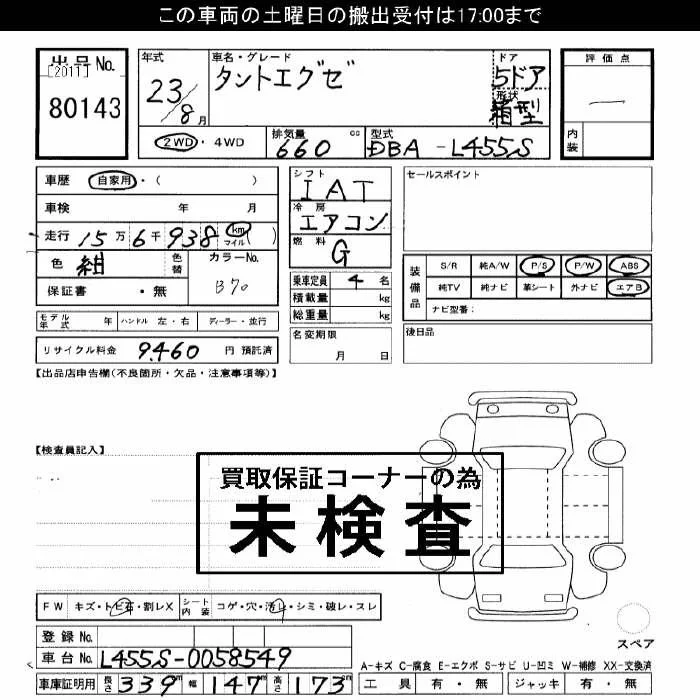 この車両の土曜日の搬出受付は17:00まで
出品No. [2011] 80143
年式 23/8月
車名・グレード タントエグゼ
ドア 5ドア
形状 箱型
評価点 —
内装
2WD・4WD
排気量 660 cc
型式 DBA-L455S
車歴 自家用・( )
シフト IAT
セールスポイント
車検 年 月
冷房 エアコン
走行 15万6千938 km マイル ( )
燃料 G
色 紺 色替 カラーNo. B70
装備品 S/R 純A/W P/S P/W ABS
純TV 純ナビ 革シート 外ナビ エアB
ナビ型番:
保証書 ・無
乗車定員 4名
積載量 kg
総重量 kg
モデル年式 年 ハンドル 左・右 ディーラー・並行
名変期限 月 日
後日品
リサイクル料金 9.460 円 預託済
【出品店申告欄(不良箇所・欠品・注意事項等)】
【検査員記入】
買取保証コーナーの為
未検査
FW キズ・トビ石・割レX シート内装 コゲ・穴・汚レ・シミ・破レ・スレ
スペア
登録No.
車台No. L455S-0058549
A-キズ C-腐食 E-エクボ S-サビ U-凹ミ W-補修 XX-交換済
車庫証明用 長さ 339m 幅 147m 高さ 173cm
工具 有・無 ジャッキ 有・無